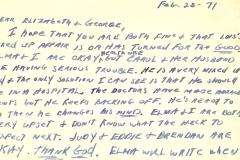 FEB. 28-71
DEAR ELIZABETH & GEORGE,
I HOPE THAT YOU ARE BOTH FINE & THAT LOIS'
MIXED UP AFFAIR IS OR HAS TURNED FOR THE GOOD.
ELMA & I ARE OKAY, BUT CAROL & HER HUSBAND
ARE HAVING SERIOUS TROUBLE. HE IS A VERY MIXED UP
& THE ONLY SOLUTION I CAN SEE IS THAT HE SHOULD
BE IN A HOSPITAL. THE DOCTORS HAVE MADE
BUT HE KEEPS BACKING OFF. HE'S READY TO
THEN HE CHANGES HIS MIND. ELMA & I ARE BOTH
VERY UPSET & DON'T KNOW WHAT THE HECK TO
EXPECT NEXT. JUDY & EDDIE & BRENDAN ARE
OKAY. THANK GOD. ELMA WILL WRITE WHEN